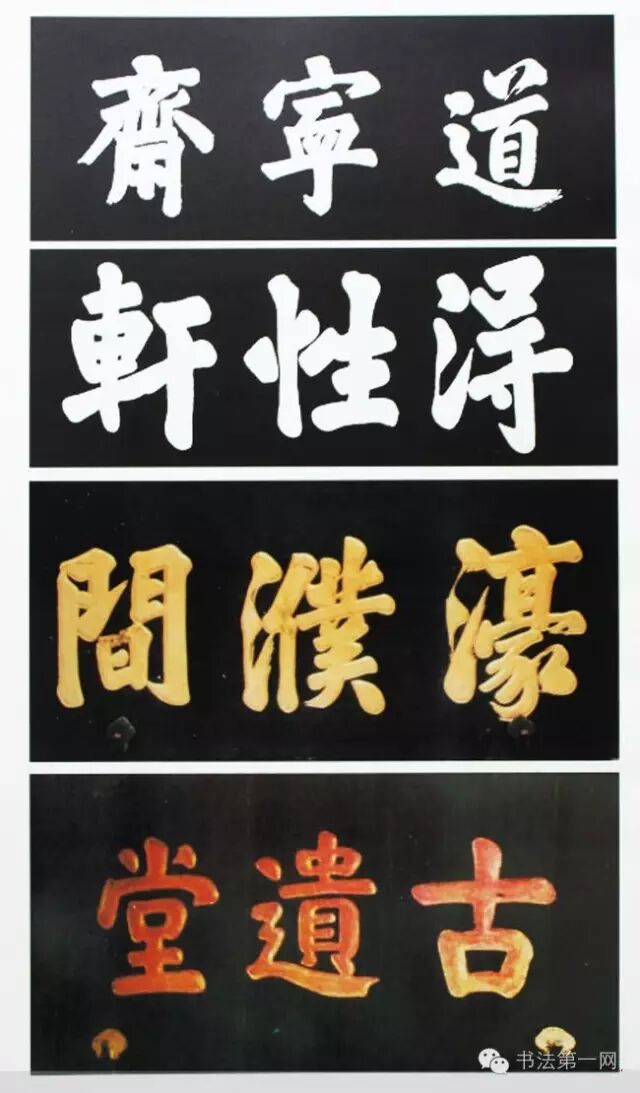 道寧齋
得性軒
濠濮間
古遺堂
书法第一网